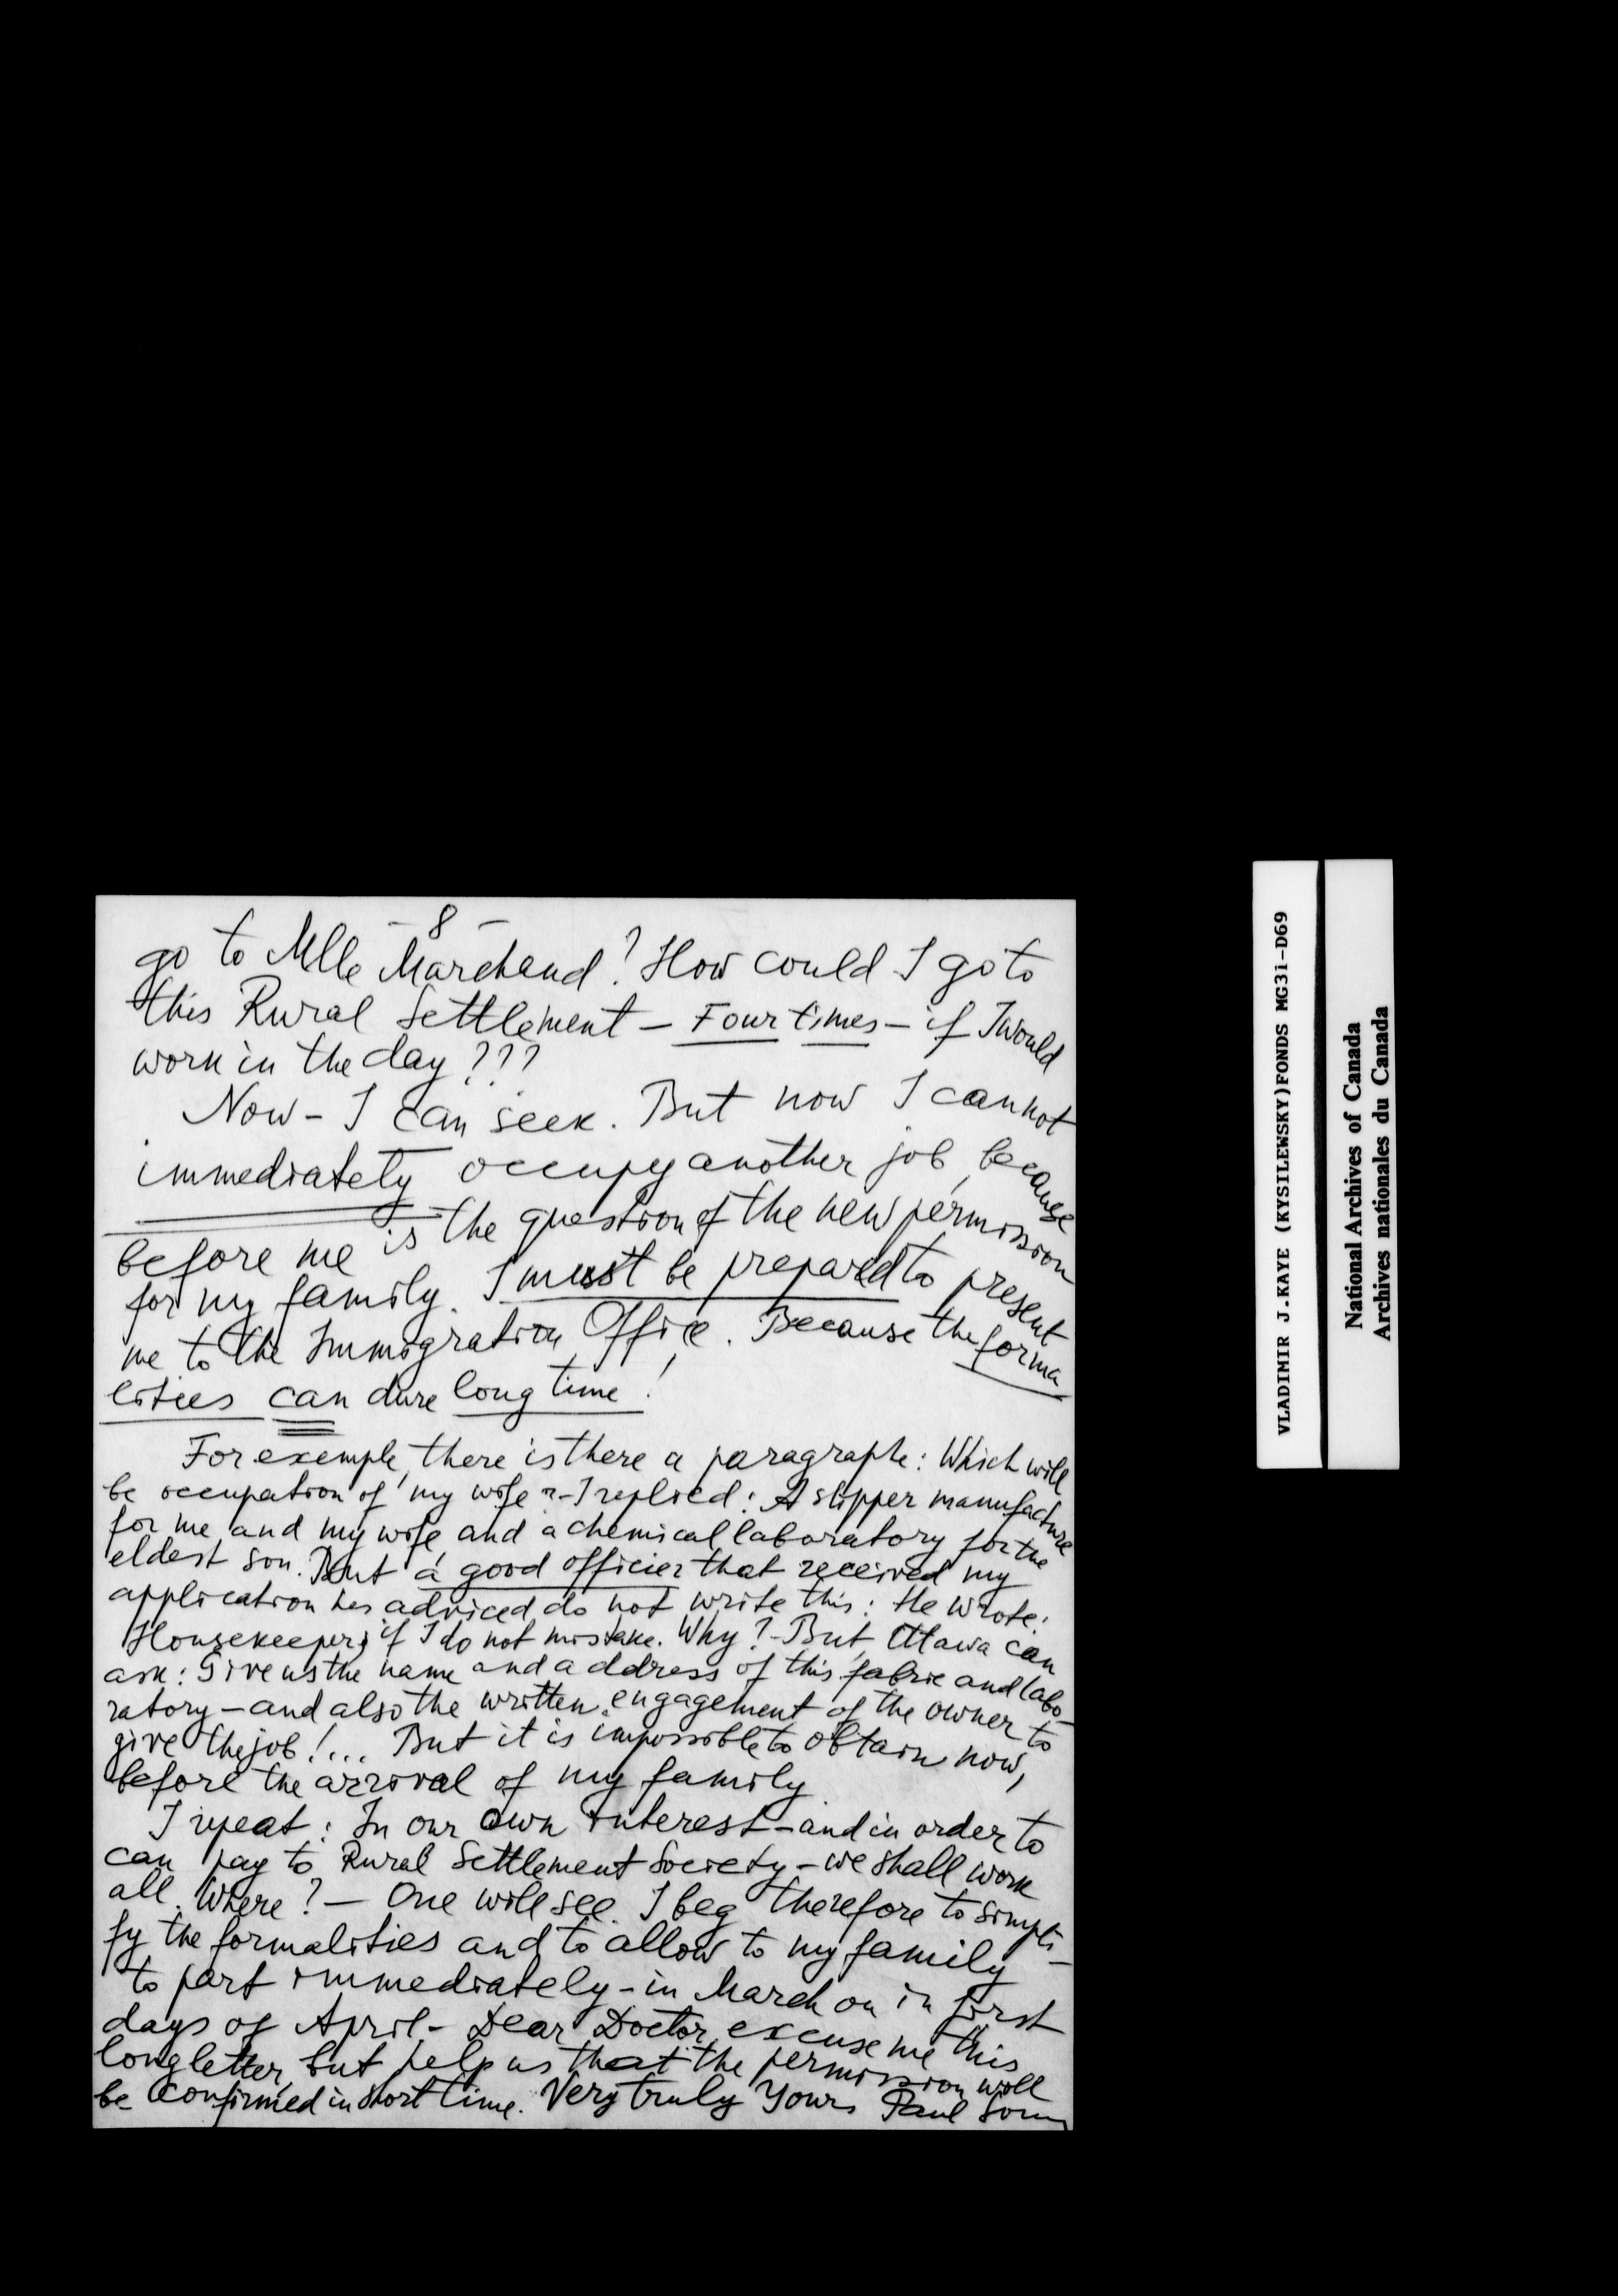 - 8 -
go to Mlle Marchand? How could I go to
this Rural Settlement - Four times - if I would
work in the day???
Now - I can seek. But now I cannot
immediately occupy another job, because
before me is the question of the new permission
for my family. I must be prepared to present
me to the Immigration Office. Because the forma
lities can dure long time!
For exemple, there is there a paragraph: Which will
be occupation of my wife? - I replied: A slipper manufacture
for me and my wife and a chemical laboratory for the
eldest son. But a good officier that received my
application has adviced do not write this: He wrote:
Housekeeper, if I do not mistake. Why? - But, Ottawa can
ask: Give us the name and address of this fabric and labo-
ratory - and also the written engagement of the owner to
give the job!... But it is impossible to obtain now,
before the arrival of my family
I repeat: In our own interest - and in order to
can pay to Rural Settlement Society - we shall work
all. Where? - One will see. I beg therefore to simpli-
fy the formalities and to allow to my family
to part immediately - in March or in first
days of April - Dear Doctor, excuse me this
long letter, but help us that the permission will
be confirmed in short time. Very truly Yours Paul
VLADIMIR J.KAYE (KYSILEWSKY)FONDS MG31-D69
National Archives of Canada
Archives nationales du Canada